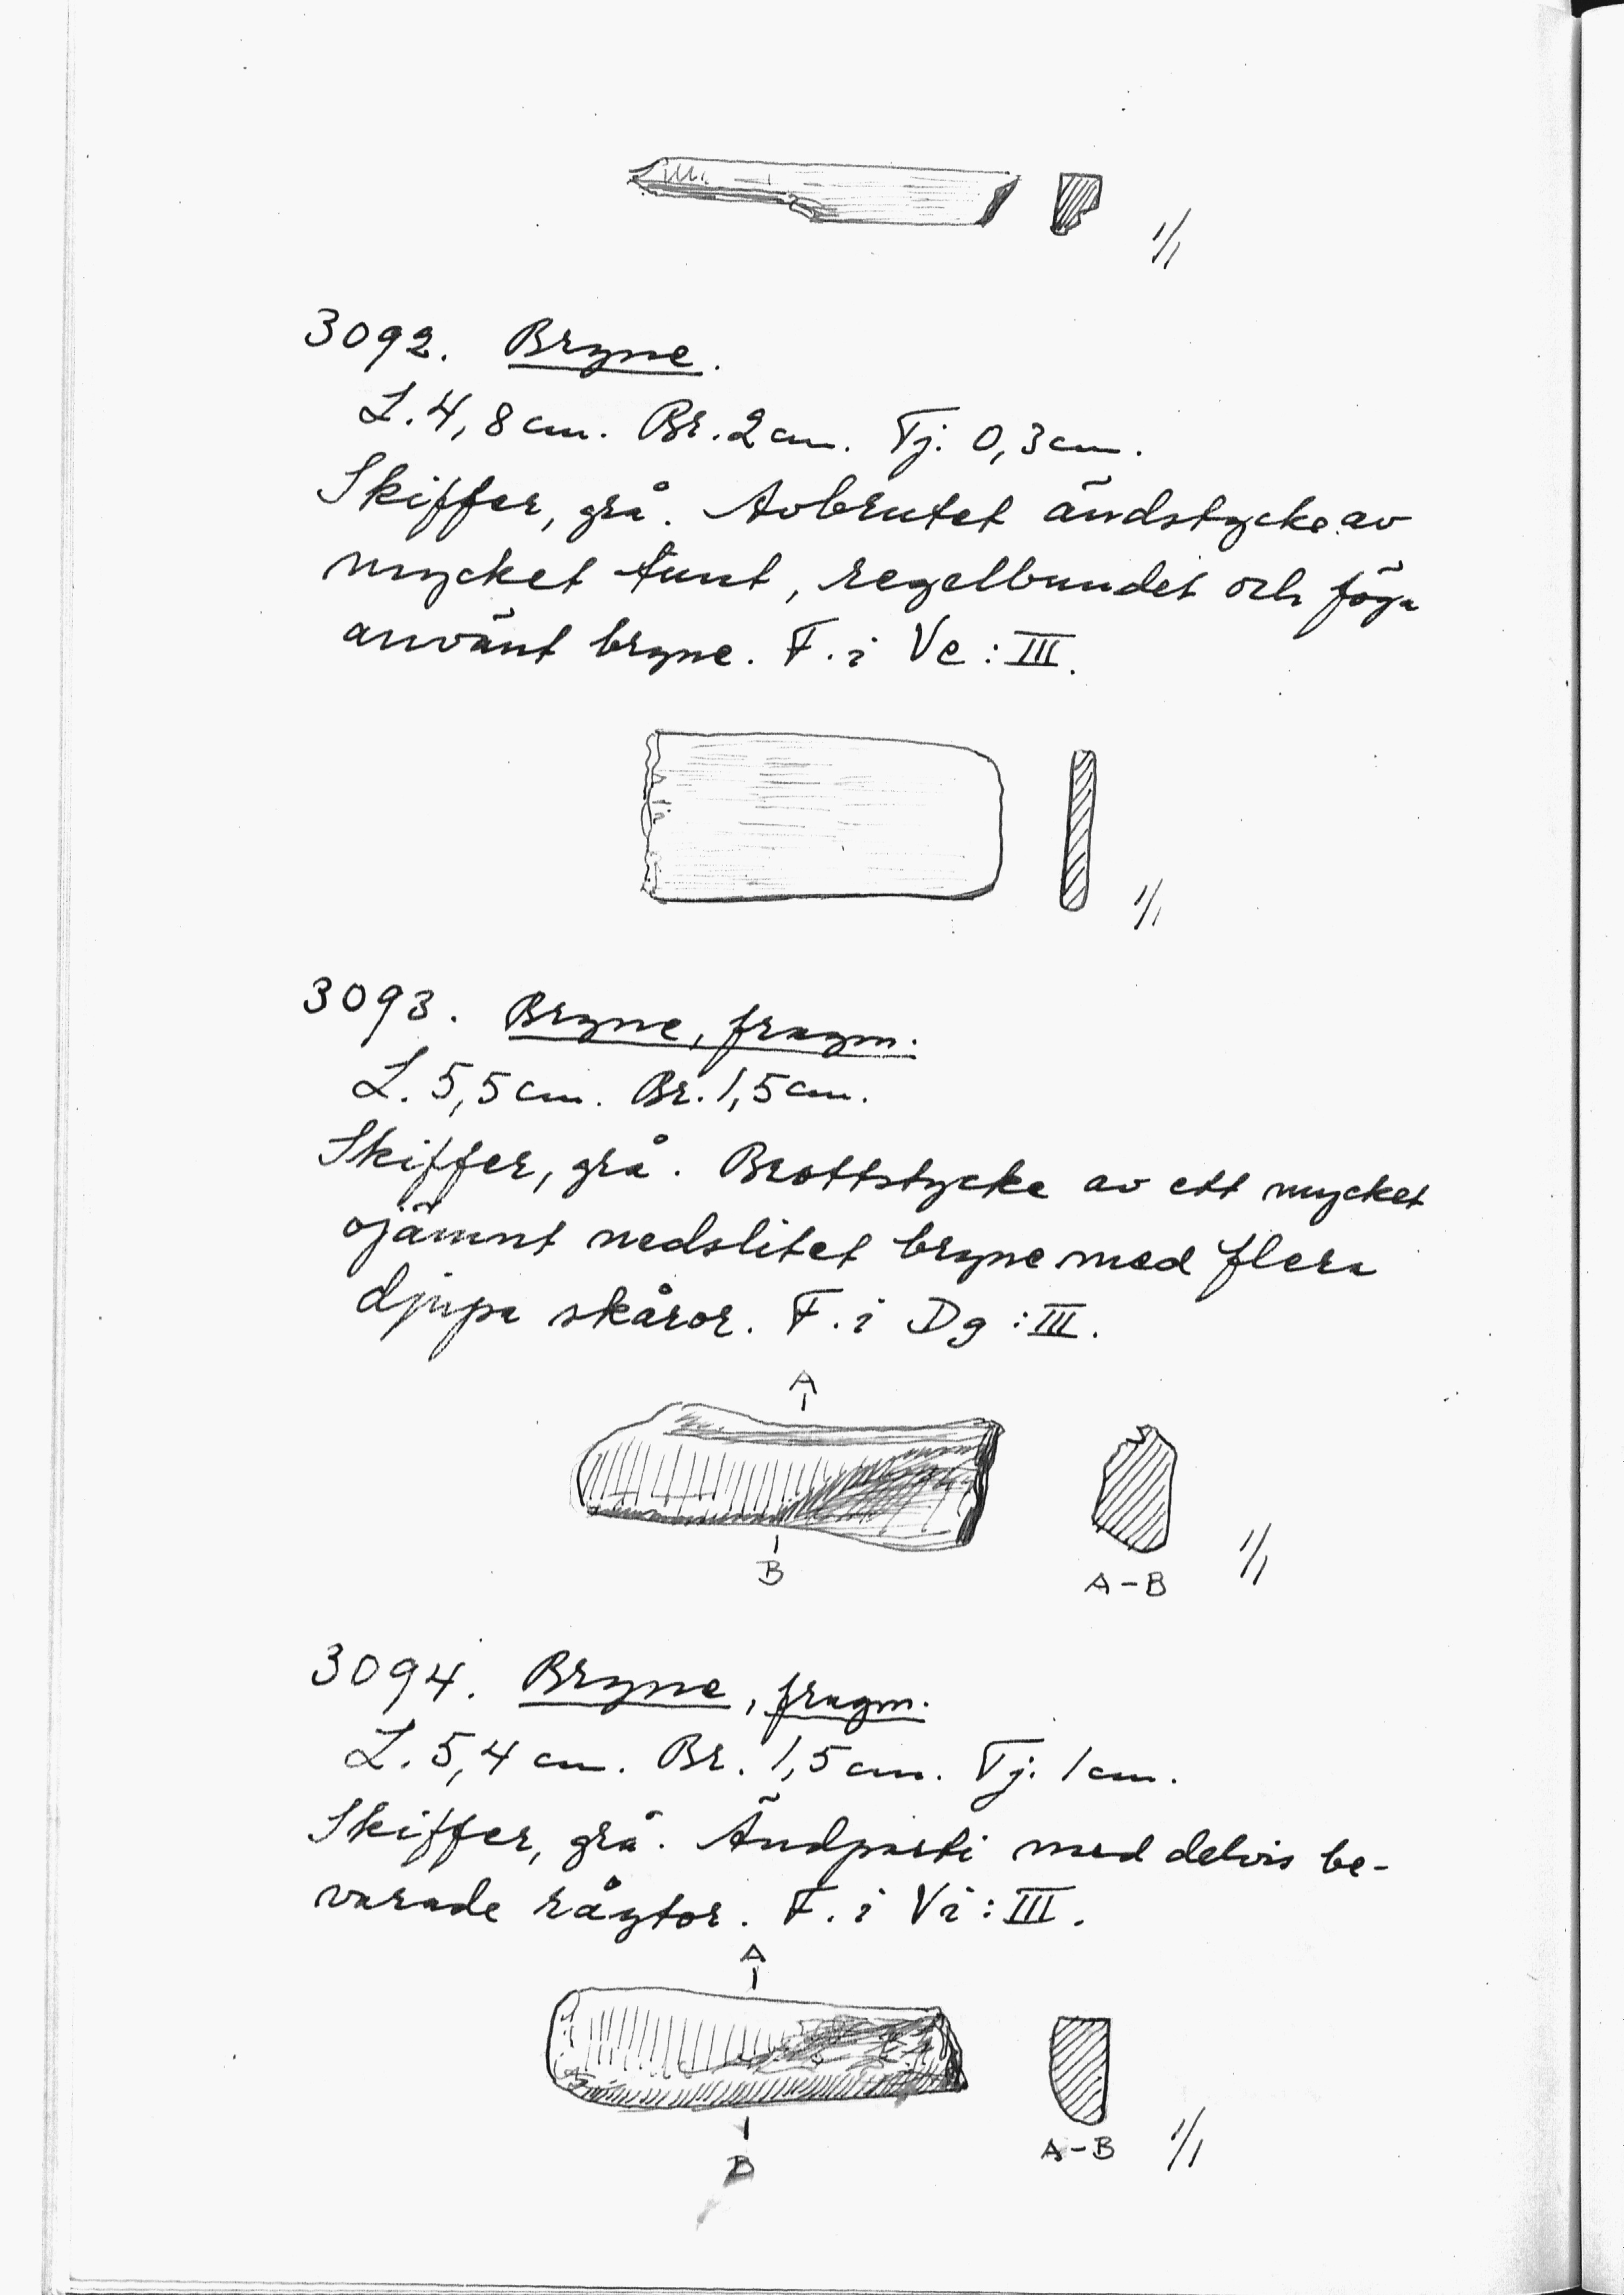 1/1
3092. Bryne.
L. 4,8 cm. Br. 2 cm. Tj. 0,3 cm.
Skiffer, grå. Avbrutet ändstycke av
mycket tunt, regelbundet och föga
använt bryne. F. i Ve : III.
1/1
3093. Bryne, fragm.
L. 5,5 cm. Br. 1,5 cm.
Skiffer, grå. Brottstycke av ett mycket
ojämnt nedslitet bryne med flera
djupa skåror. F. i Dg : III.
A
B
A-B
1/1
3094. Bryne, fragm.
L. 5,4 cm. Br. 1,5 cm. Tj. 1 cm.
Skiffer, grå. Ändparti med delvis be-
varade råytor. F. i Vi : III.
A
B
A-B
1/1